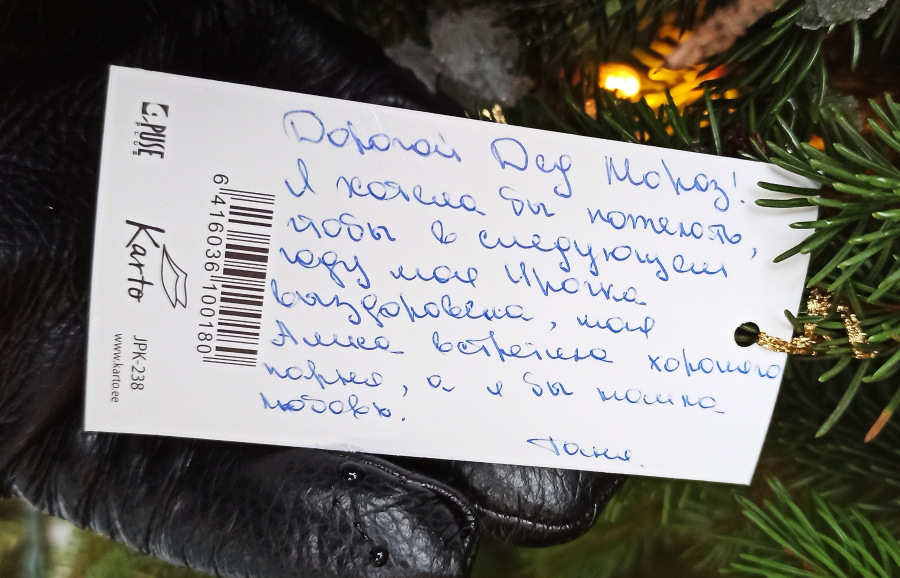 Дорогой Дед Мороз!
Я хотела бы пожелать,
чтобы в следующем
году моя Ирочка
выздоровела, моя
Алиса встретила хорошего
парня, а я бы нашла
любовь.
Таня.
PUSE
6 416036 100180
Karto
JPK-238
www.karto.ee